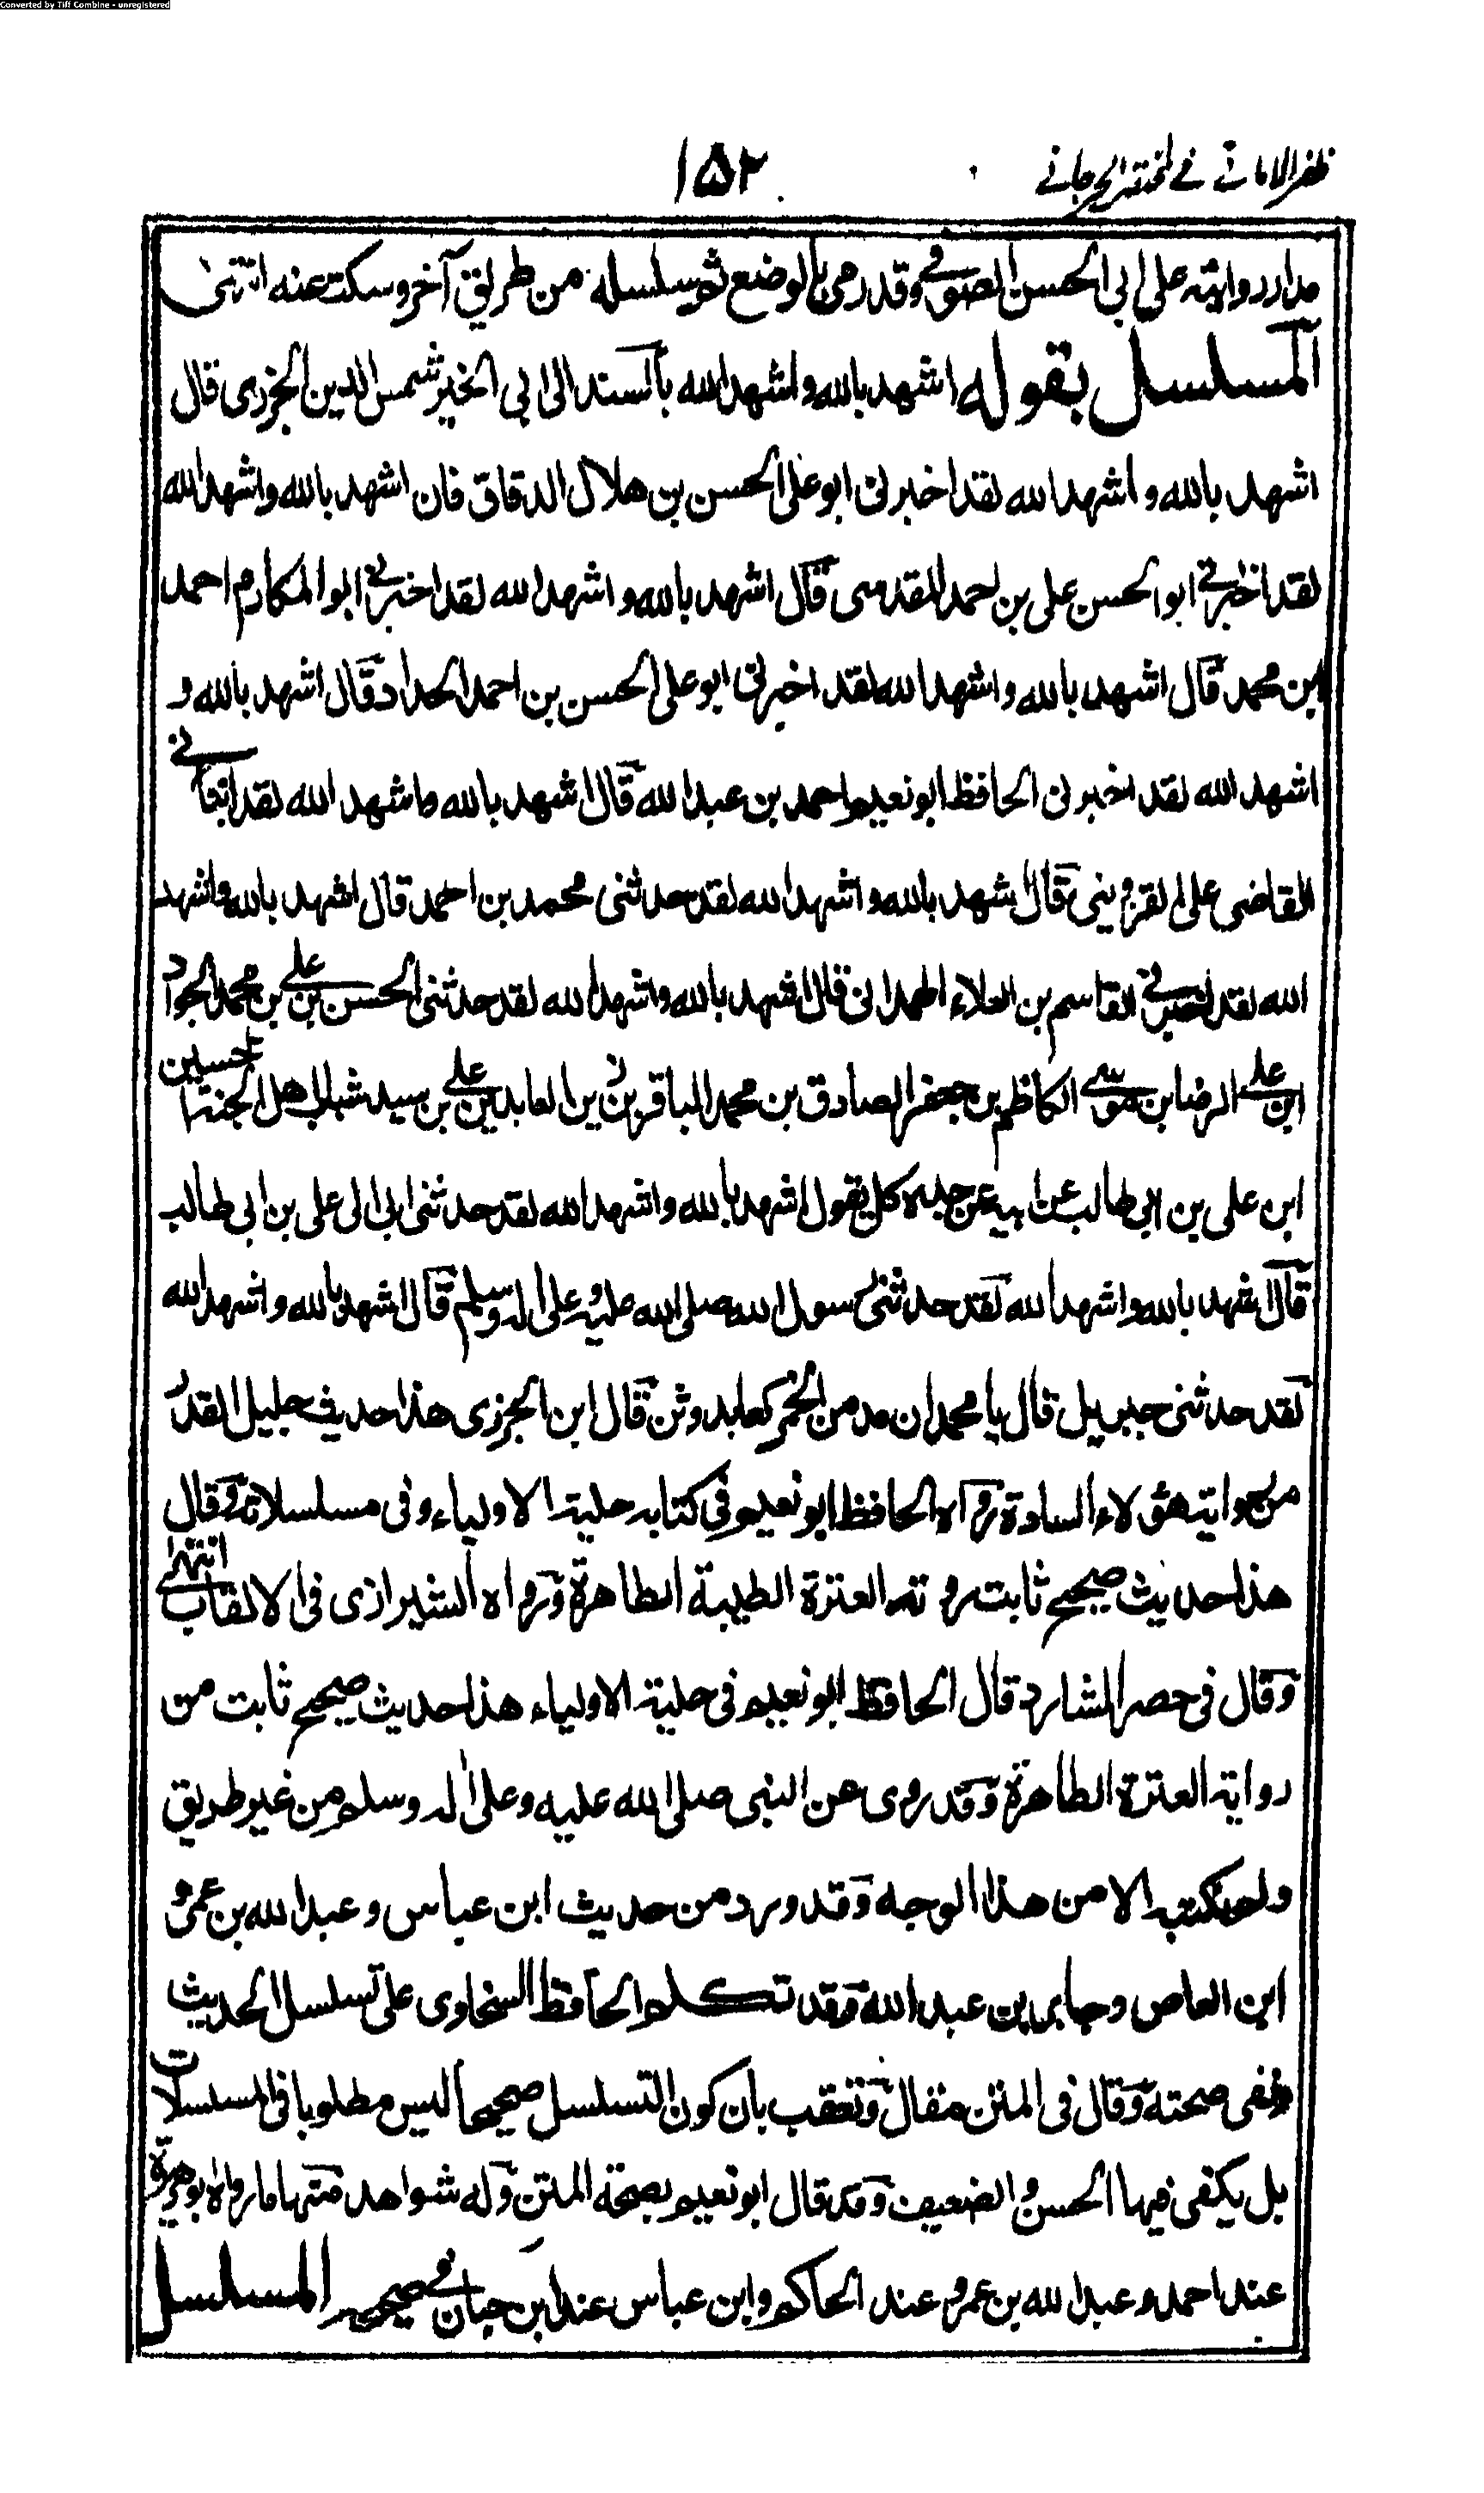 Converted by Tiff Combine - unregistered
ظفر الاماني في مختصر الجرجاني
١٥٢
مدار روايته على ابي الحسن الصوفي وقد رمي بالوضع ثم سلسله من طريق آخر وسكت عنه انتهى
المسلسل بقوله اشهد بالله واشهد الله بالسند الى ابي الخير شمس الدين الجزري قال
اشهد بالله واشهد الله لقد اخبرني ابو على الحسن بن هلال الدقاق قال اشهد بالله واشهد الله
لقد اخبرني ابو الحسن على بن احمد المقدسى قال اشهد بالله واشهد الله لقد اخبرني ابو المكارم احمد
بن محمد قال اشهد بالله واشهد الله لقد اخبرنى ابو على الحسن بن احمد الحداد قال اشهد بالله و
اشهد الله لقد اخبرنى الحافظ ابو نعيم احمد بن عبد الله قال اشهد بالله واشهد الله لقد انبأني
القاضى على القزوينى قال اشهد بالله واشهد الله لقد حدثنى محمد بن احمد قال اشهد بالله واشهد
الله لقد اخبرني القاسم بن العلاء الهمدانى قال اشهد بالله واشهد الله لقد حدثنى الحسن بن علي بن محمد الجواد
ابن علي الرضا بن موسى الكاظم بن جعفر الصادق بن محمد الباقر بن زين العابدين علي بن سيد شباب اهل الجنة الحسين
ابن على بن ابى طالب عن ابيه عن جده كل يقول اشهد بالله واشهد الله لقد حدثنى ابى الى على بن ابى طالب
قال اشهد بالله واشهد الله لقد حدثنى رسول الله صلى الله عليه وعلى اله وسلم قال اشهد بالله واشهد الله
لقد حدثنى جبريل قال يا محمد ان مدمن الخمر كعابد وثن قال ابن الجزرى هذا حديث جليل القدر
من رواية هؤلاء السادة رواه الحافظ ابو نعيم في كتابه حلية الاولياء وفى مسلسلاته وقال
هذا حديث صحيح ثابت روته العترة الطيبة الطاهرة ورواه الشيرازى فى الالقاب انتهى
وقال فى حصر الشارد قال الحافظ ابو نعيم فى حلية الاولياء هذا حديث صحيح ثابت من
رواية العترة الطاهرة وقد روى عن النبى صلى الله عليه وعلى اله وسلم من غير طريق
ولم نكتبه الا من هذا الوجه وقد ورد من حديث ابن عباس وعبد الله بن عمرو
ابن العاص وجابر بن عبد الله وقد تكلم الحافظ السخاوى على تسلسل الحديث
ونفى صحته وقال فى المتن مقال وتعقب بان كون التسلسل صحيحا ليس مطلوبا فى المسلسلات
بل يكفى فيها الحسن والضعيف وقد قال ابو نعيم بصحة المتن وله شواهد منها ما رواه ابو هريرة
عند احمد وعبد الله بن عمرو عند الحاكم وابن عباس عند ابن حبان في صحيحه المسلسل